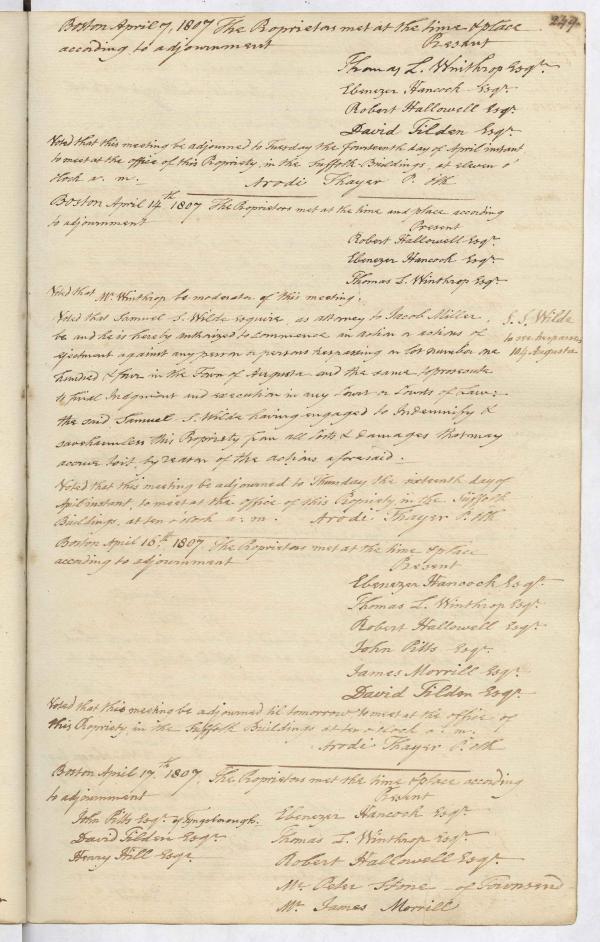 249
Boston April 7, 1807 The Proprietors met at the time & place
according to adjournment
Present
Thomas L. Winthrop Esqr.
Ebenezer Hancock Esqr.
Robert Hallowell Esqr.
David Tilden Esqr.
Voted that this meeting be adjourned to Tuesday the fourteenth day of April instant
to meet at the office of this Propriety, in the Suffolk Buildings, at eleven o'
clock a. m. Arodi Thayer P. Clk
Boston April 14th 1807 The Proprietors met at the time and place according
to adjournment
Present
Robert Hallowell Esqr.
Ebenezer Hancock Esqr.
Thomas L. Winthrop Esqr.
Voted that Mr. Winthrop be moderator of this meeting.
Voted that Samuel S. Wilde Esquire, as attorney to Jacob Miller,
be and he is hereby authorized to commence an action or actions of
ejectment against any person or persons trespassing on lot number one
hundred & four in the Town of Augusta and the same to prosecute
to final Judgment and execution in any Court or Courts of Law;
the said Samuel S. Wilde having engaged to Indemnify &
save harmless this Propriety from all Costs & damages that may
accrue to it, by reason of the actions aforesaid.
S. S. Wilde
to sue trespassers
104 Augusta
Voted that this meeting be adjourned to Thursday the sixteenth day of
April instant, to meet at the office of this Propriety in the Suffolk
Buildings, at ten o'clock a. m. Arodi Thayer P. Clk
Boston April 16th 1807. The Proprietors met at the time & place
according to adjournment
Present
Ebenezer Hancock Esqr.
Thomas L. Winthrop Esqr.
Robert Hallowell Esqr.
John Pitts Esqr.
James Morrill Esqr.
David Tilden Esqr.
Voted that this meeting be adjourned til tomorrow, to meet at the office of
this Propriety, in the Suffolk Buildings at ten o'clock a. m.
Arodi Thayer P. Clk
Boston April 17th 1807. The Proprietors met the time & place according
to adjournment
Present
John Pitts Esqr. of Tyngsborough.
David Tilden Esqr.
Henry Hill Esqr.
Ebenezer Hancock Esqr.
Thomas L. Winthrop Esqr.
Robert Hallowell Esqr.
Mr. Peter Stone of Townsend
Mr. James Morrill